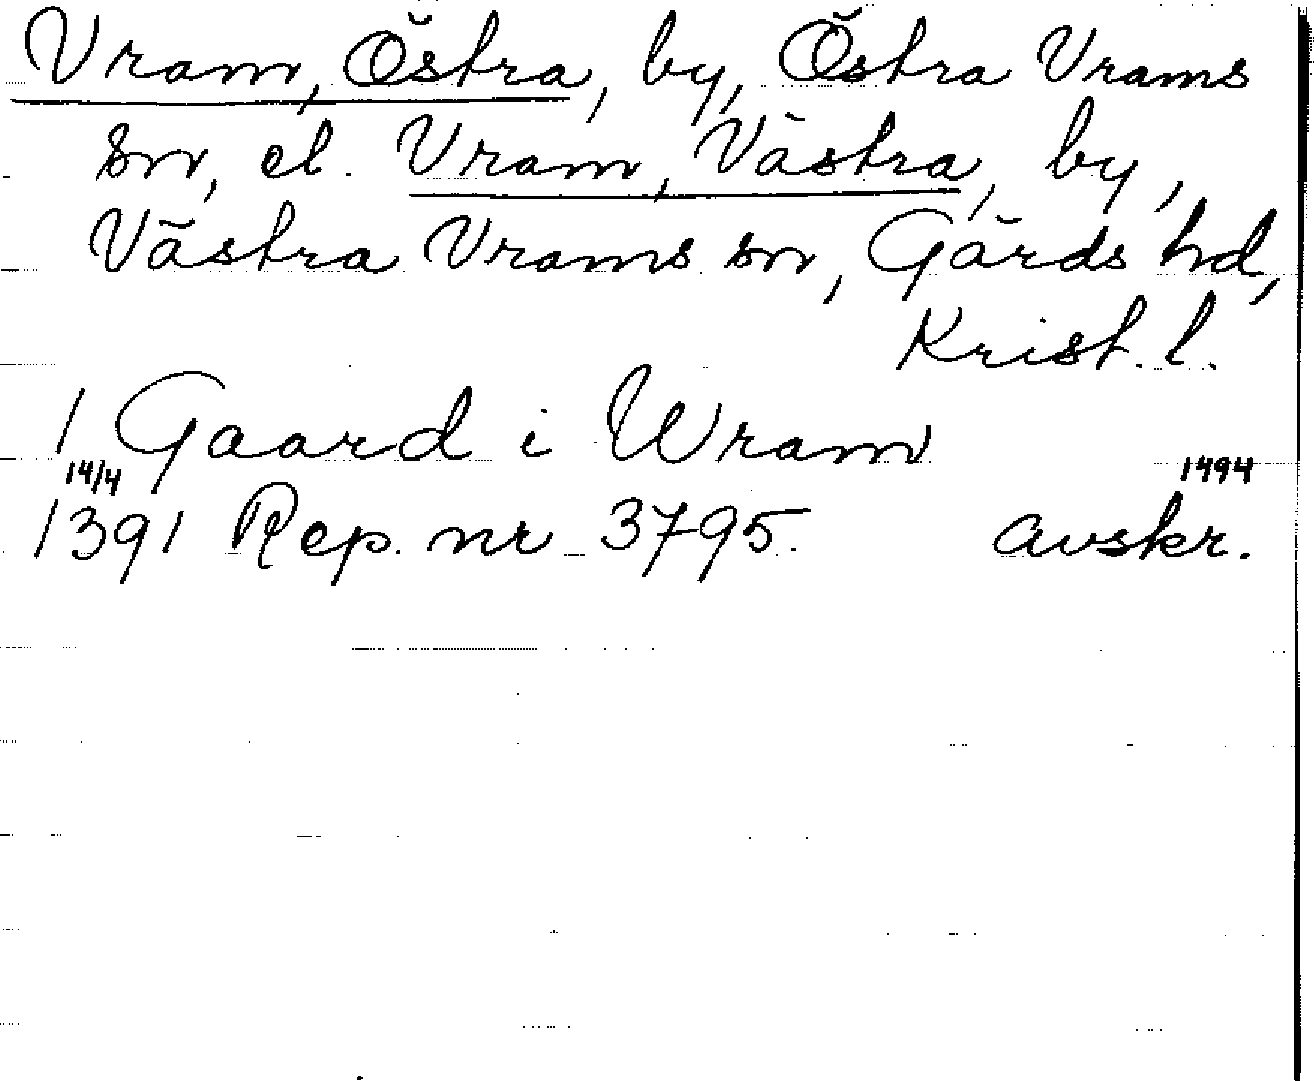 Vram, Östra, by, Östra Vrams
sn, el. Vram, Västra, by,
Västra Vrams sn, Gärds hd,
Krist. l.
1 Gaard i Wram
14/4 1494
1391 Rep. nr 3795. avskr.